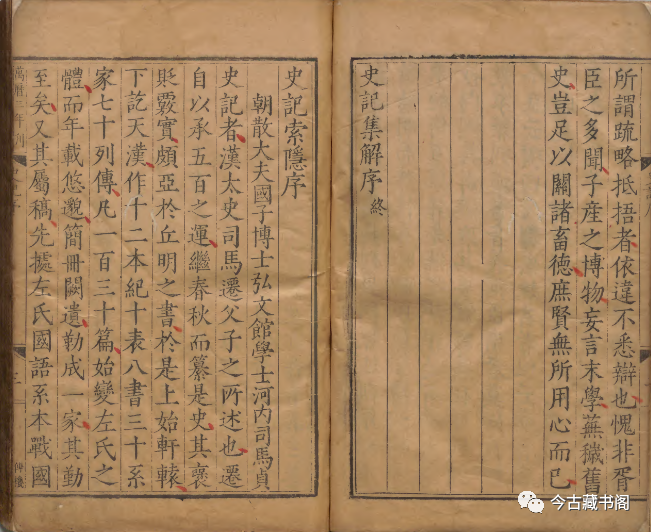 所謂疏略抵捂者依違不悉辯也愧非胥
臣之多聞子產之博物妄言末學蕪穢舊
史豈足以關諸畜德庶賢無所用心而已
史記集解序終
史記索隱序
朝散大夫國子博士弘文館學士河內司馬貞
史記者漢太史司馬遷父子之所述也遷
自以承五百之運繼春秋而纂是史其褒
貶覈實頗亞於丘明之書於是上始軒轅
下訖天漢作十二本紀十表八書三十系
家七十列傳凡一百三十篇始變左氏之
體而年載悠邈簡冊闕遺勒成一家其勤
至矣又其屬稿先據左氏國語系本戰國
萬曆三年刊
今古藏书阁